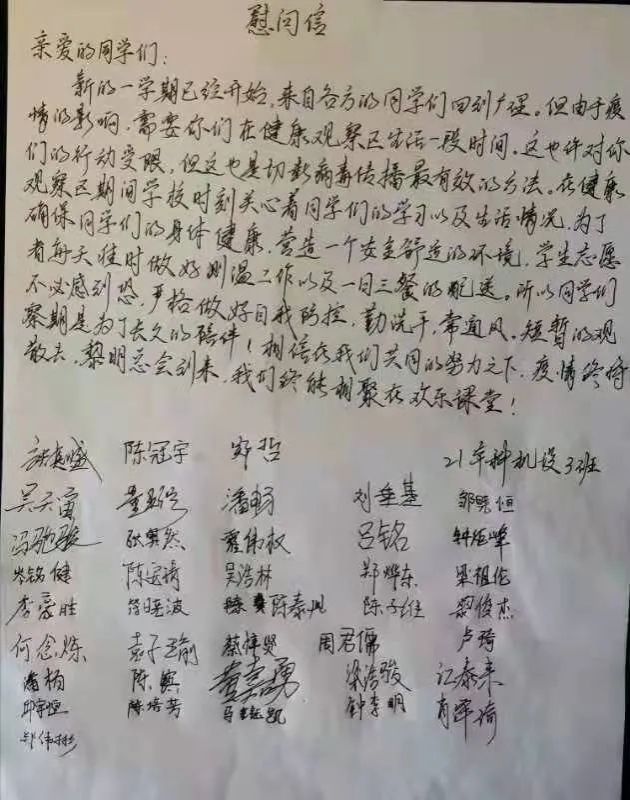 慰问信
亲爱的同学们:
新的一学期已经开始,来自各方的同学们回到广理。但由于疫
情的影响,需要你们在健康观察区生活一段时间,这也许对你
们的行动受限,但这也是切断病毒传播最有效的方法。在健康
观察区期间学校时刻关心着同学们的学习以及生活情况,为了
确保同学们的身体健康,营造一个安全舒适的环境,学生志愿
者每天准时做好测温工作以及一日三餐的配送。所以同学们
不必感到恐,严格做好自我防控,勤洗手,常通风。短暂的观
察期是为了长久的陪伴!相信在我们共同的努力之下,疫情终将
散去,黎明总会到来,我们终能相聚在欢乐课堂!
陈冠宇 郑哲 21本科机设3班
吴天宙 潘畅 刘垂基 邹晓恒
冯驰骏 吕铭
岑铭健 吴浩林 郑烨东 梁祖伦
李豪胜 徐晓波 陈泰 黎俊杰
何念烁 袁子瑜 蔡梓贤 周君儒 卢琦
潘柏 黄嘉勇 梁浩骏 江泰来
邱宇恒 陈培芳 钟李明